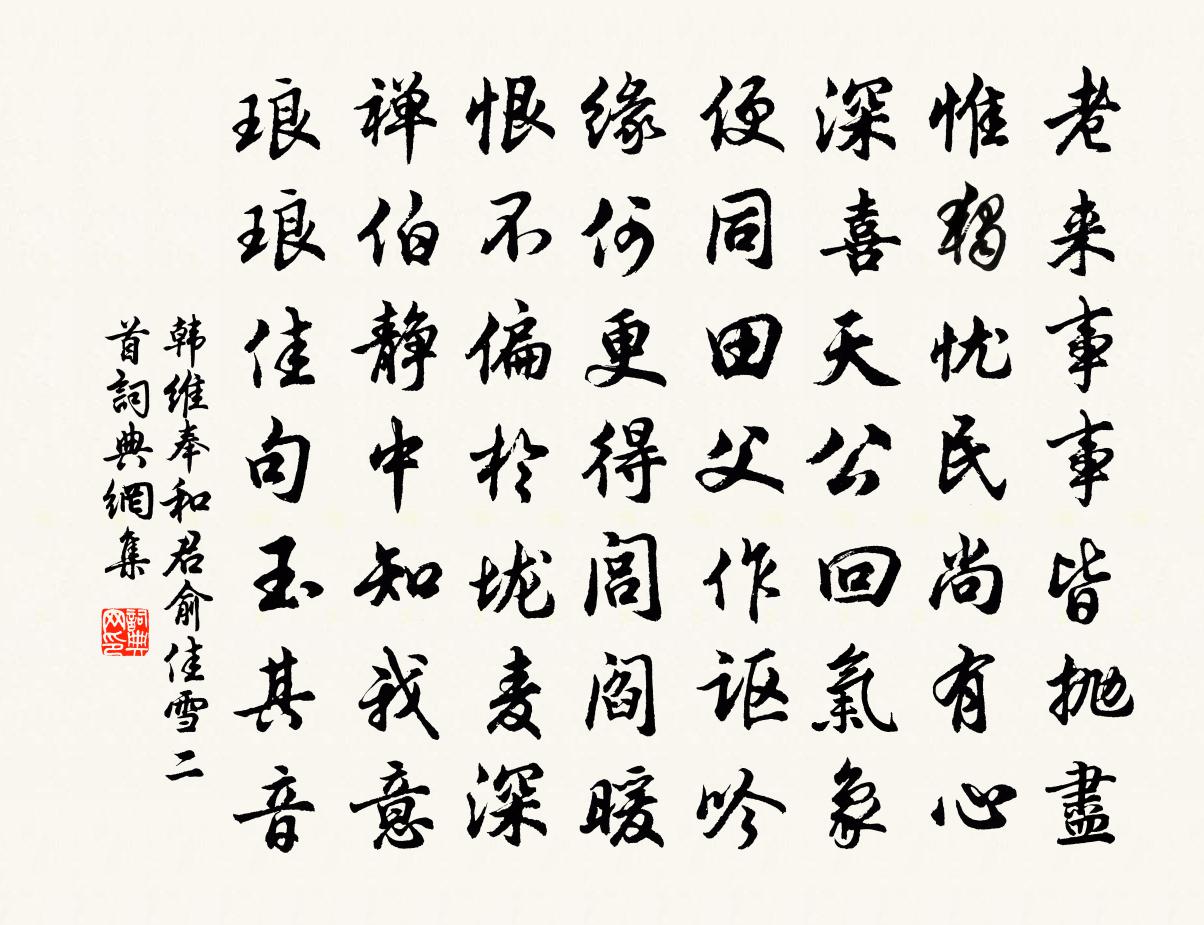 老来事事皆抛盡
惟獨忧民尚有心
深喜天公回氣象
便同田父作讴吟
缘何更得閭阎暖
恨不偏於垅麦深
禅伯静中知我意
琅琅佳句玉其音
韩维奉和君俞佳雪二
首詞典網集
詞典
网印